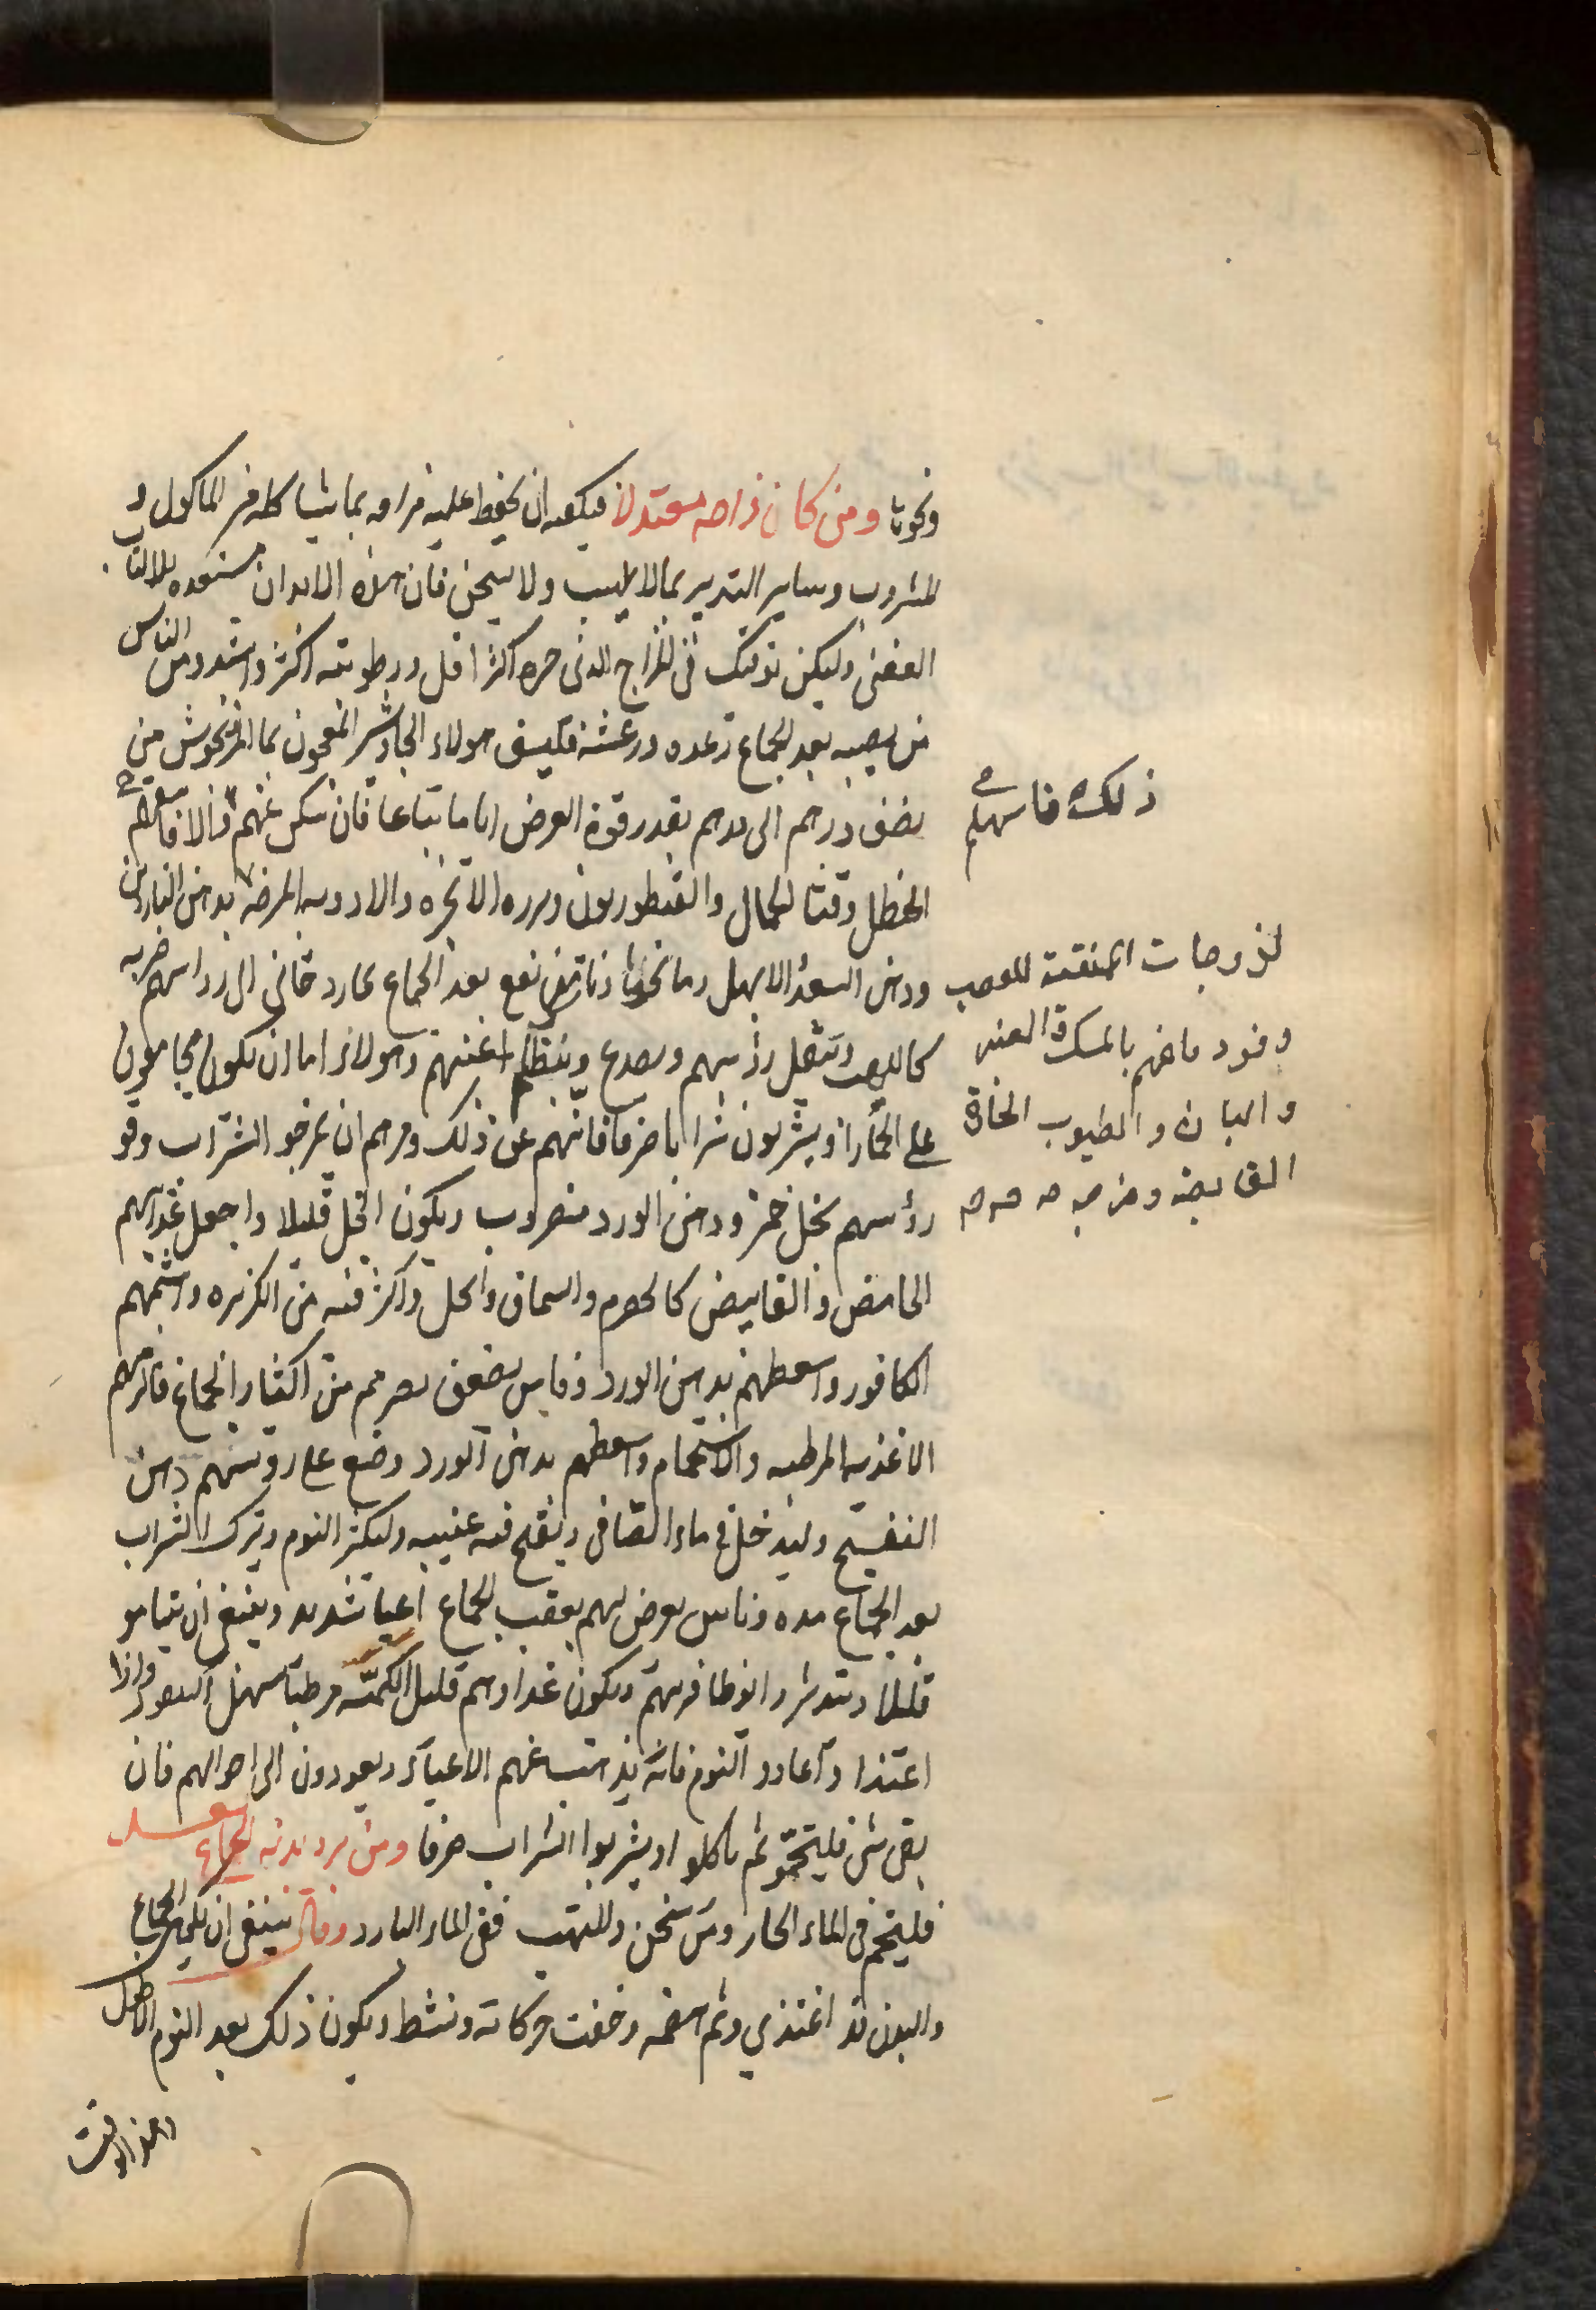 ونحوها ومن كان مزاجه معتدلا فيكفيه ان يحفظ عليه مزاجه بما يشاكله من الماكول و
المشروب وساير التدبير بما لا يلهب ولا يسخن فان هذه الابدان مستعده للالتهاب
العفني وليكن توقيك في المزاج الذي حره اقل ورطوبته اكثر واشد ومن الناس
من يصيبه بعد الجماع رعده ورعشة فليسق هولاء الجاوشير المعجون بما المرزنجوش من
نصف درهم الى درهم بقدر قوة العرض اياما تباعا فان سكن عنهم والا فاسهلهم
الحنظل وقثا الحمار والقنطوريون وبزره الانجره والادويه بدهن الناردين
ودهن السعد الابهل وما نحوها وناس نفع بعد الجماع بخار دخاني الى رواسهم ضربه
كاللهيب وتثقل رؤسهم ويصدع وينظلم اعينهم وهولاء اما ان يكون يجامعون
على الخمار او يشربون شرابا صرفا فانههم عن ذلك ومرهم ان يمزجو الشراب وقو
رؤسهم بخل خمر ودهن الورد مضروب ويكون الخل قليلا واجعل غذاهم
الحامض والقابض كالحصرم والسماق والخل واكثر فيه من الكزبره واشمهم
الكافور واسعطهم بدهن الورد وناس يضعف بصرهم من اكثار الجماع فالزمهم
الاغذيه المرطبه والاستحمام واسعطهم بدهن الورد وضع على روسهم دهن
النفسج وليدخل في ماء الصافى ويفتح فيه عينيه وليكثر النوم ويترك الشراب
بعد الجماع مده وناس يعرض لهم بعقب الجماع اعيا شديد وينبغي ان يناموا
قليلا ويتدثروا نوطا فرشهم ويكون غذاوهم قليل الكميه مرطبا سهل النفوذ واذا
اغتذا واعادو النوم فانه يذهب عنهم الاعياء ويعودون الى احوالهم فان
بقى شى فليتحمو ثم ياكلوا ويشربوا الشراب صرفا ومن برد بدنه بعد الجماع
فليتحم فى الماء الحار ومن سخن والتهب ففى الماء البارد وقال ينبغى ان يكون الجماع
والبدن قد اغتذي وثم هضمه وخفت حركاته ونشط ويكون ذلك بعد النوم الاطول
وهذا الوقت
ذلك فاسهلهم
لزوجات المنقية للعصب
وقود ماغهم بالمسك و العنبر
والبان والطيوب الحارة
القابضه ومزجه